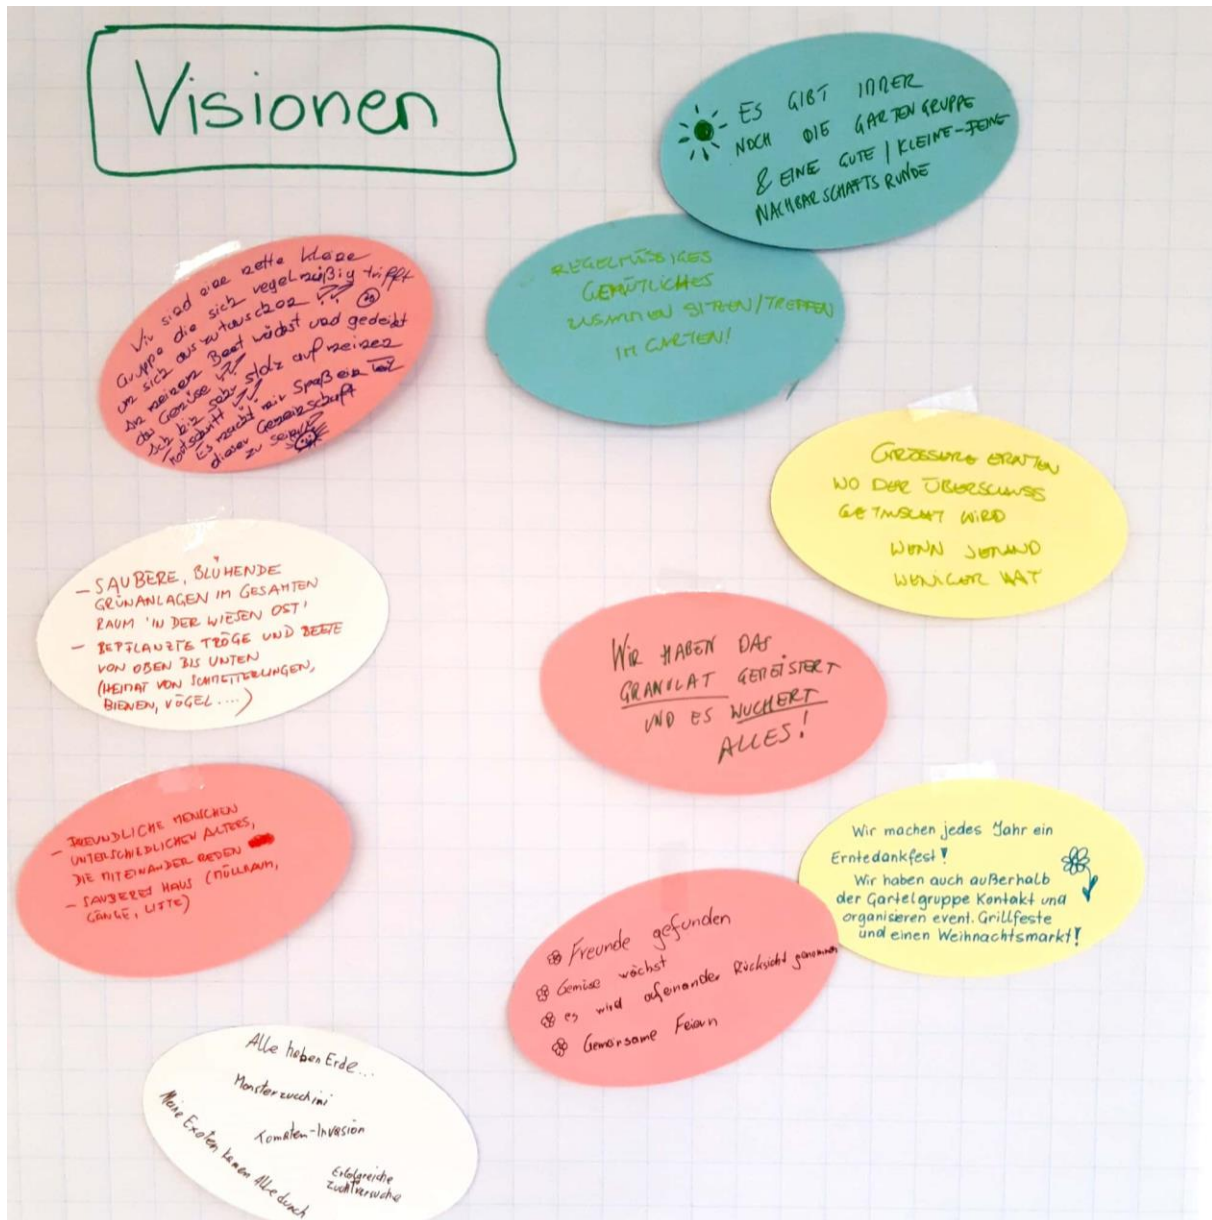 Visionen
ES GIBT IMMER
NOCH DIE GARTENGRUPPE
& EINE GUTE / KLEINE-FEINE
NACHBARSCHAFTSRUNDE
REGELMÄSSIGES
GEMÜTLICHES
ZUSAMMEN SITZEN/TREFFEN
IM GARTEN!
Wir sind eine nette kleine
Gruppe die sich regelmäßig trifft
um sich auszutauschen
In meinem Beet wächst und gedeiht
das Gemüse
Ich bin sehr stolz auf meinen
Es macht mir Spaß ein Teil
dieser Gemeinschaft
zu sein
ERNTEN
WO DER ÜBERSCHUSS
GETAUSCHT WIRD
WENN JEMAND
WENIGER HAT
- SAUBERE, BLÜHENDE
GRÜNANLAGEN IM GESAMTEN
RAUM 'IN DER WIESEN OST'
- BEPFLANZTE TRÖGE UND BEETE
VON OBEN BIS UNTEN
(HEIMAT VON SCHMETTERLINGEN,
BIENEN, VÖGEL ....)
WIR HABEN DAS
GRANULAT GEMEISTERT
UND ES WUCHERT
ALLES!
- FREUNDLICHE MENSCHEN
UNTERSCHIEDLICHEN ALTERS,
DIE MITEINANDER REDEN
- SAUBERES HAUS (MÜLLRAUM,
GÄNGE, LIFTE)
Wir machen jedes Jahr ein
Erntedankfest!
Wir haben auch außerhalb
der Gartelgruppe Kontakt und
organisieren event. Grillfeste
und einen Weihnachtsmarkt!
Freunde gefunden
Gemüse wächst
es wird aufeinander Rücksicht genommen
Gemeinsame Feiern
Alle haben Erde...
Monsterzucchini
Tomaten-Invasion
Erfolgreiche
Zuchtversuche
Meine Exoten kamen Alle durch